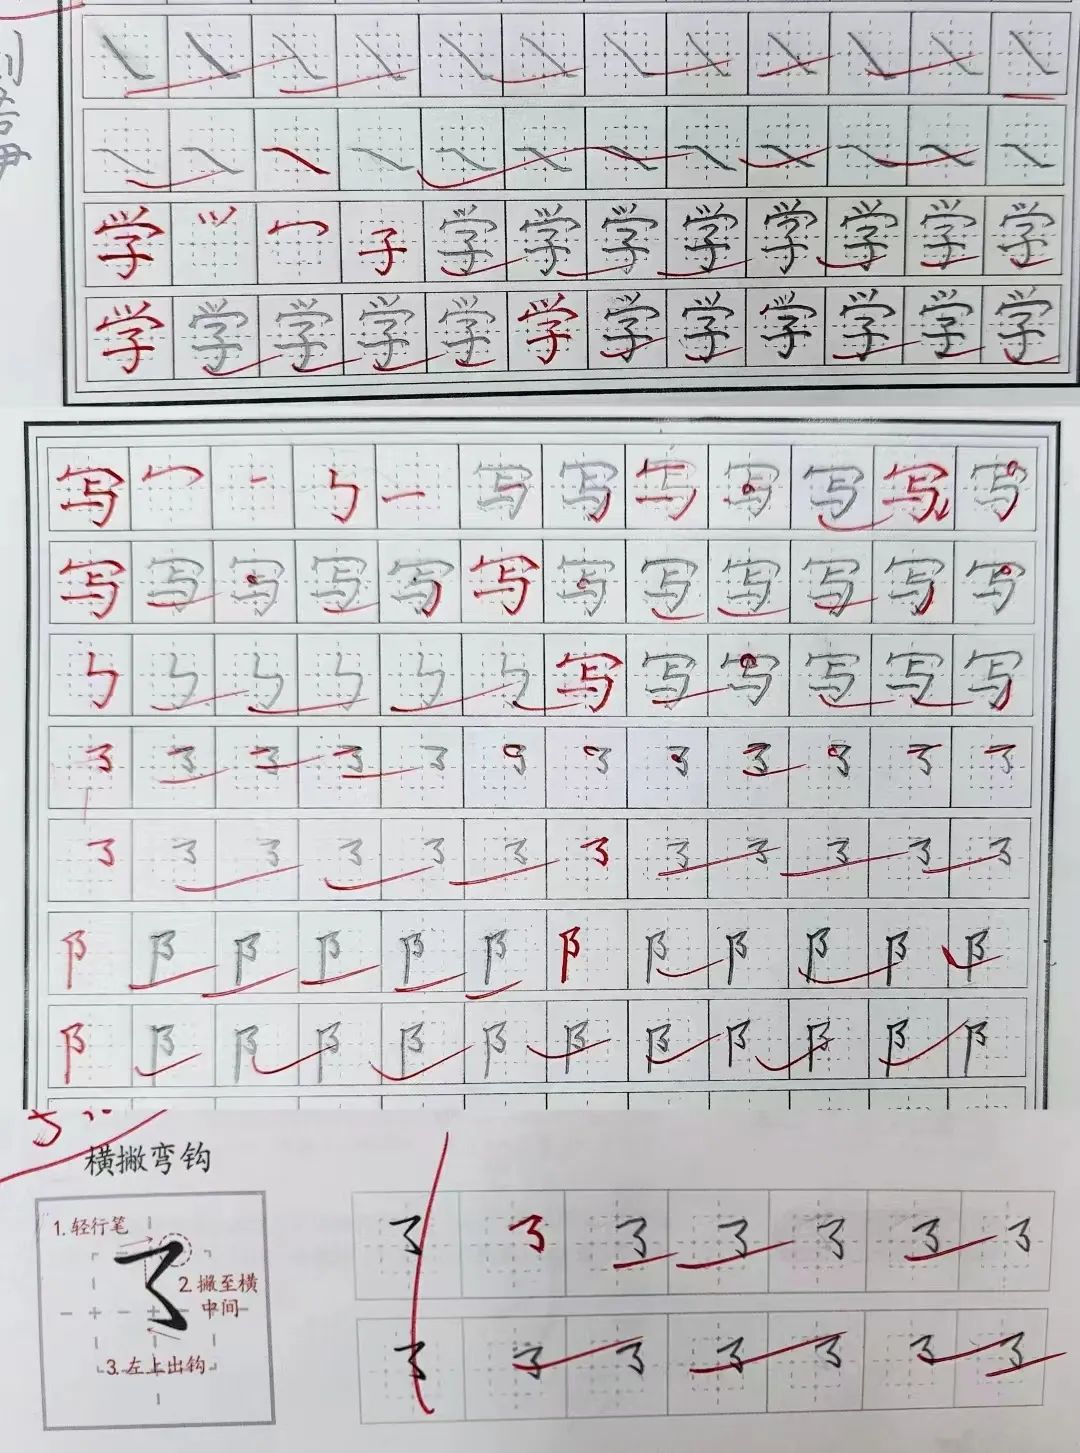 学 ⺍ 冖 子 学 学 学 学 学 学 学 学
学 学 学 学 学 学 学 学 学 学 学 学
写 冖 一 ㇉ 一 写 写 写 写 写 写 写
写 写 写 写 写 写 写 写 写 写 写 写
㇉ ㇉ ㇉ ㇉ ㇉ ㇉ 写 写 写 写 写 写
㇌ ㇌ ㇌ ㇌ ㇌ ㇌ ㇌ ㇌ ㇌ ㇌ ㇌ ㇌
㇌ ㇌ ㇌ ㇌ ㇌ ㇌ ㇌ ㇌ ㇌ ㇌ ㇌ ㇌
阝 阝 阝 阝 阝 阝 阝 阝 阝 阝 阝 阝
阝 阝 阝 阝 阝 阝 阝 阝 阝 阝 阝 阝
横撇弯钩
1. 轻行笔
㇌
2. 撇至横
中间
3. 左上出钩
㇌ ㇌ ㇌ ㇌ ㇌ ㇌ ㇌
㇌ ㇌ ㇌ ㇌ ㇌ ㇌ ㇌